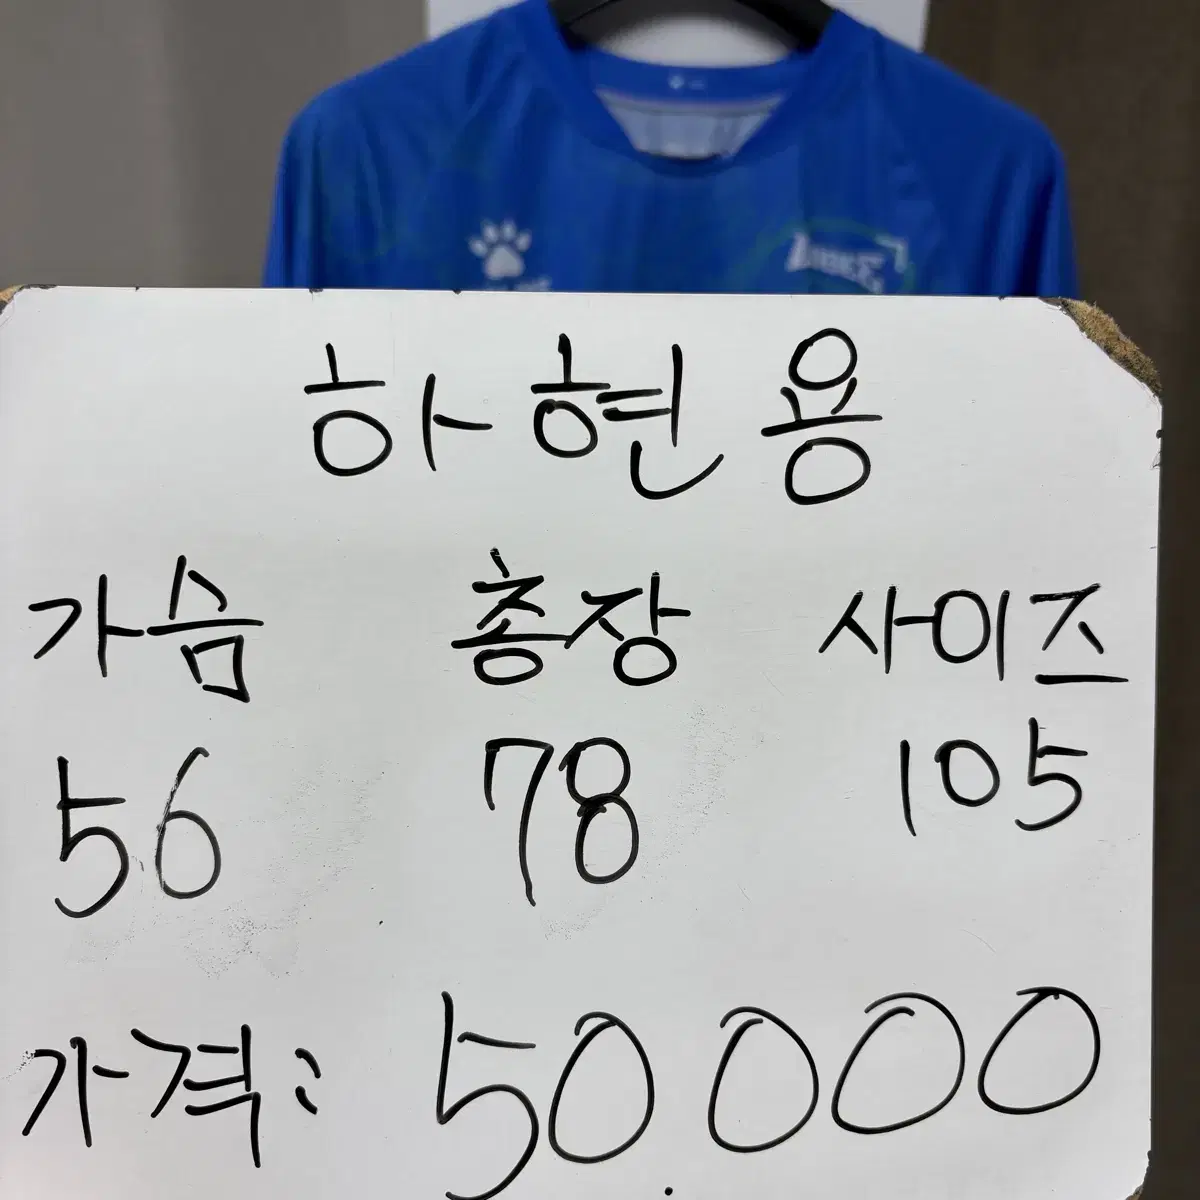 하현용
가슴 총장 사이즈
56 78 105
가격: 50.000